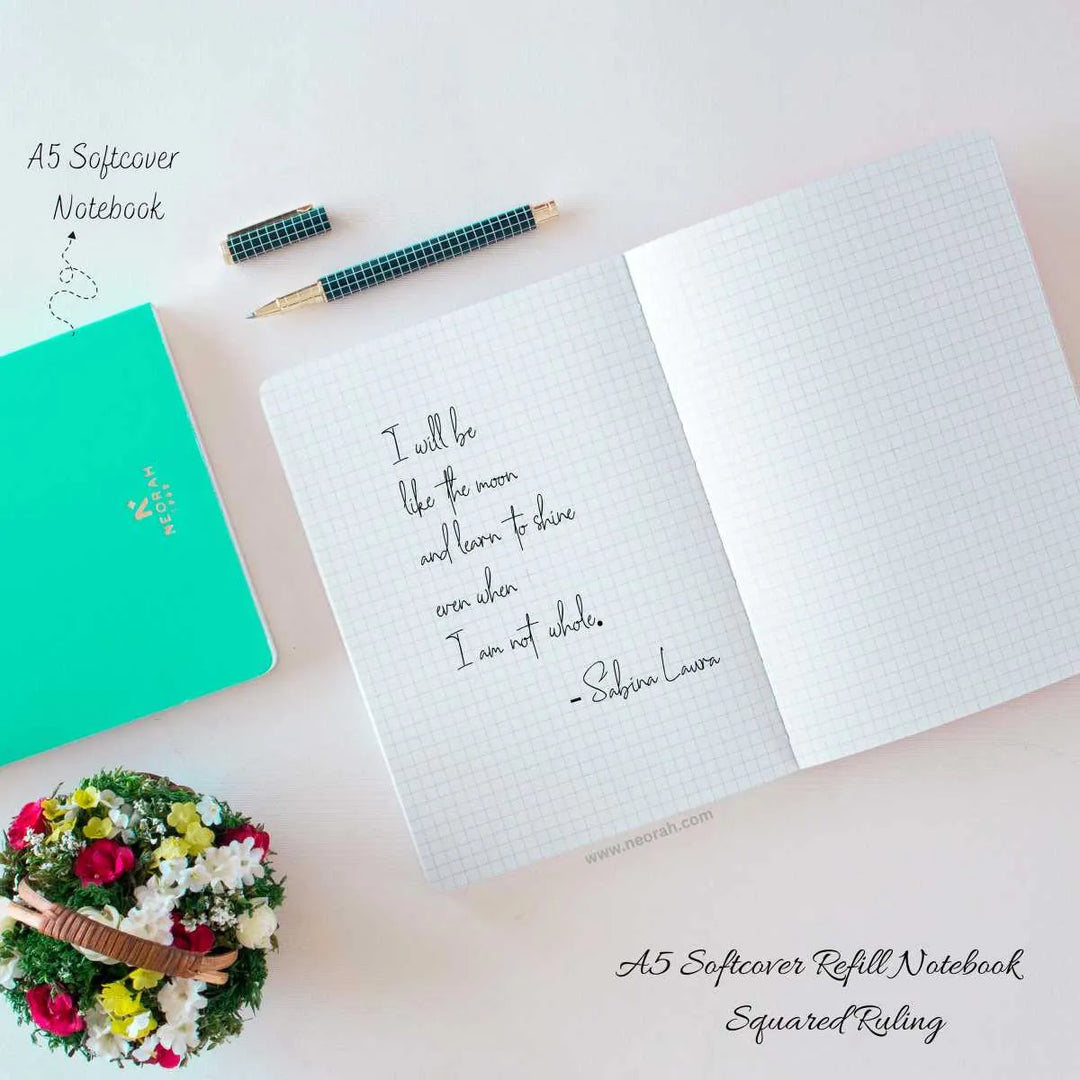 A5 Softcover
Notebook
NEORAH
I will be
like the moon
and learn to shine
even when
I am not whole.
-Sabina Laura
www.neorah.com
A5 Softcover Refill Notebook
Squared Ruling